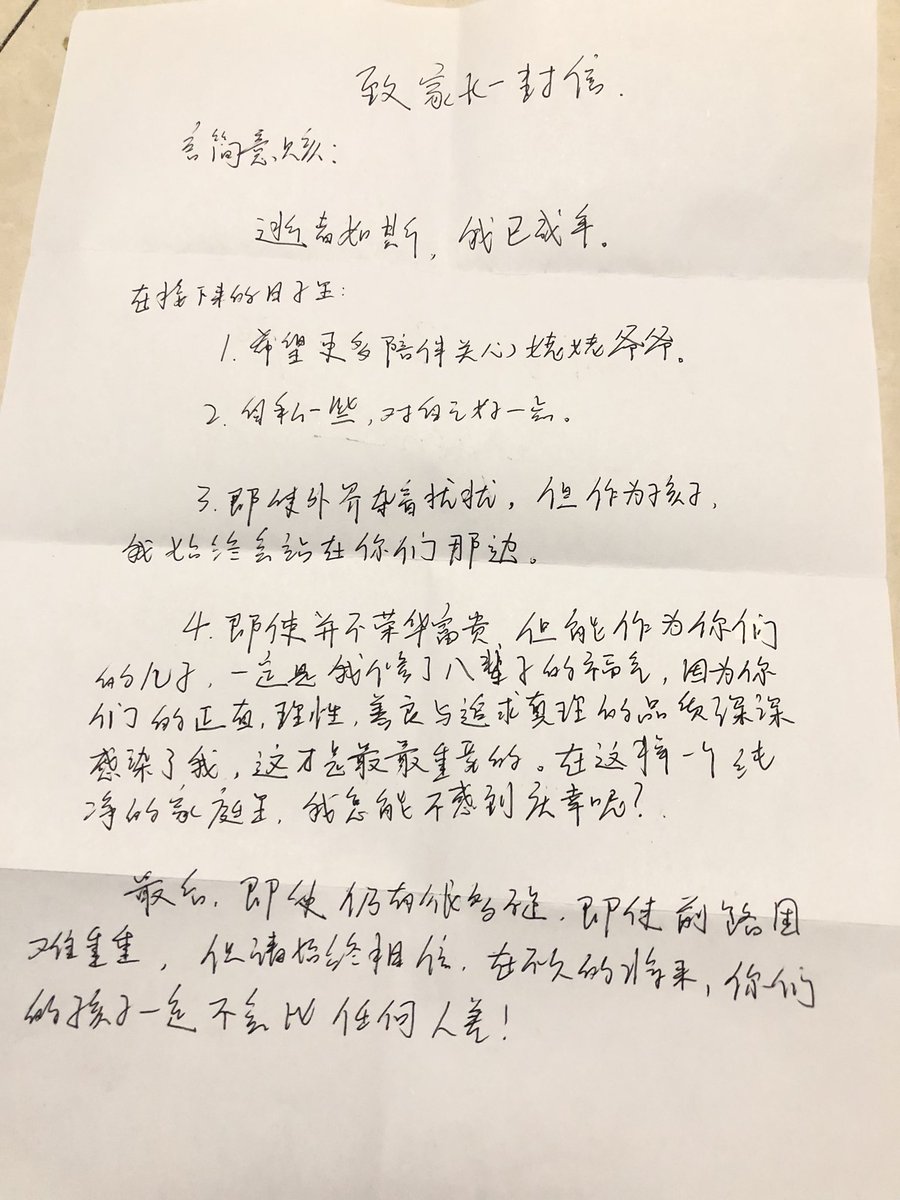 致家长一封信.
言简意赅:
逝者如斯,我已成年。
在接下来的日子里:
1. 希望更多陪伴关心姥姥爷爷。
2. 自私一些,对自己好一点。
3. 即使外界杂音扰扰,但作为孩子,
我始终会站在你们那边。
4. 即使并不荣华富贵,但能作为你们
的儿子,一定是我修了八辈子的福气,因为你
们的正直,理性,善良与追求真理的品质深深
感染了我,这才是最最重要的。在这样一个纯
净的家庭里,我怎能不感到庆幸呢?
最后,即使仍有很多,即使前路困
难重重,但请始终相信,在不久的将来,你们
的孩子一定不会比任何人差!